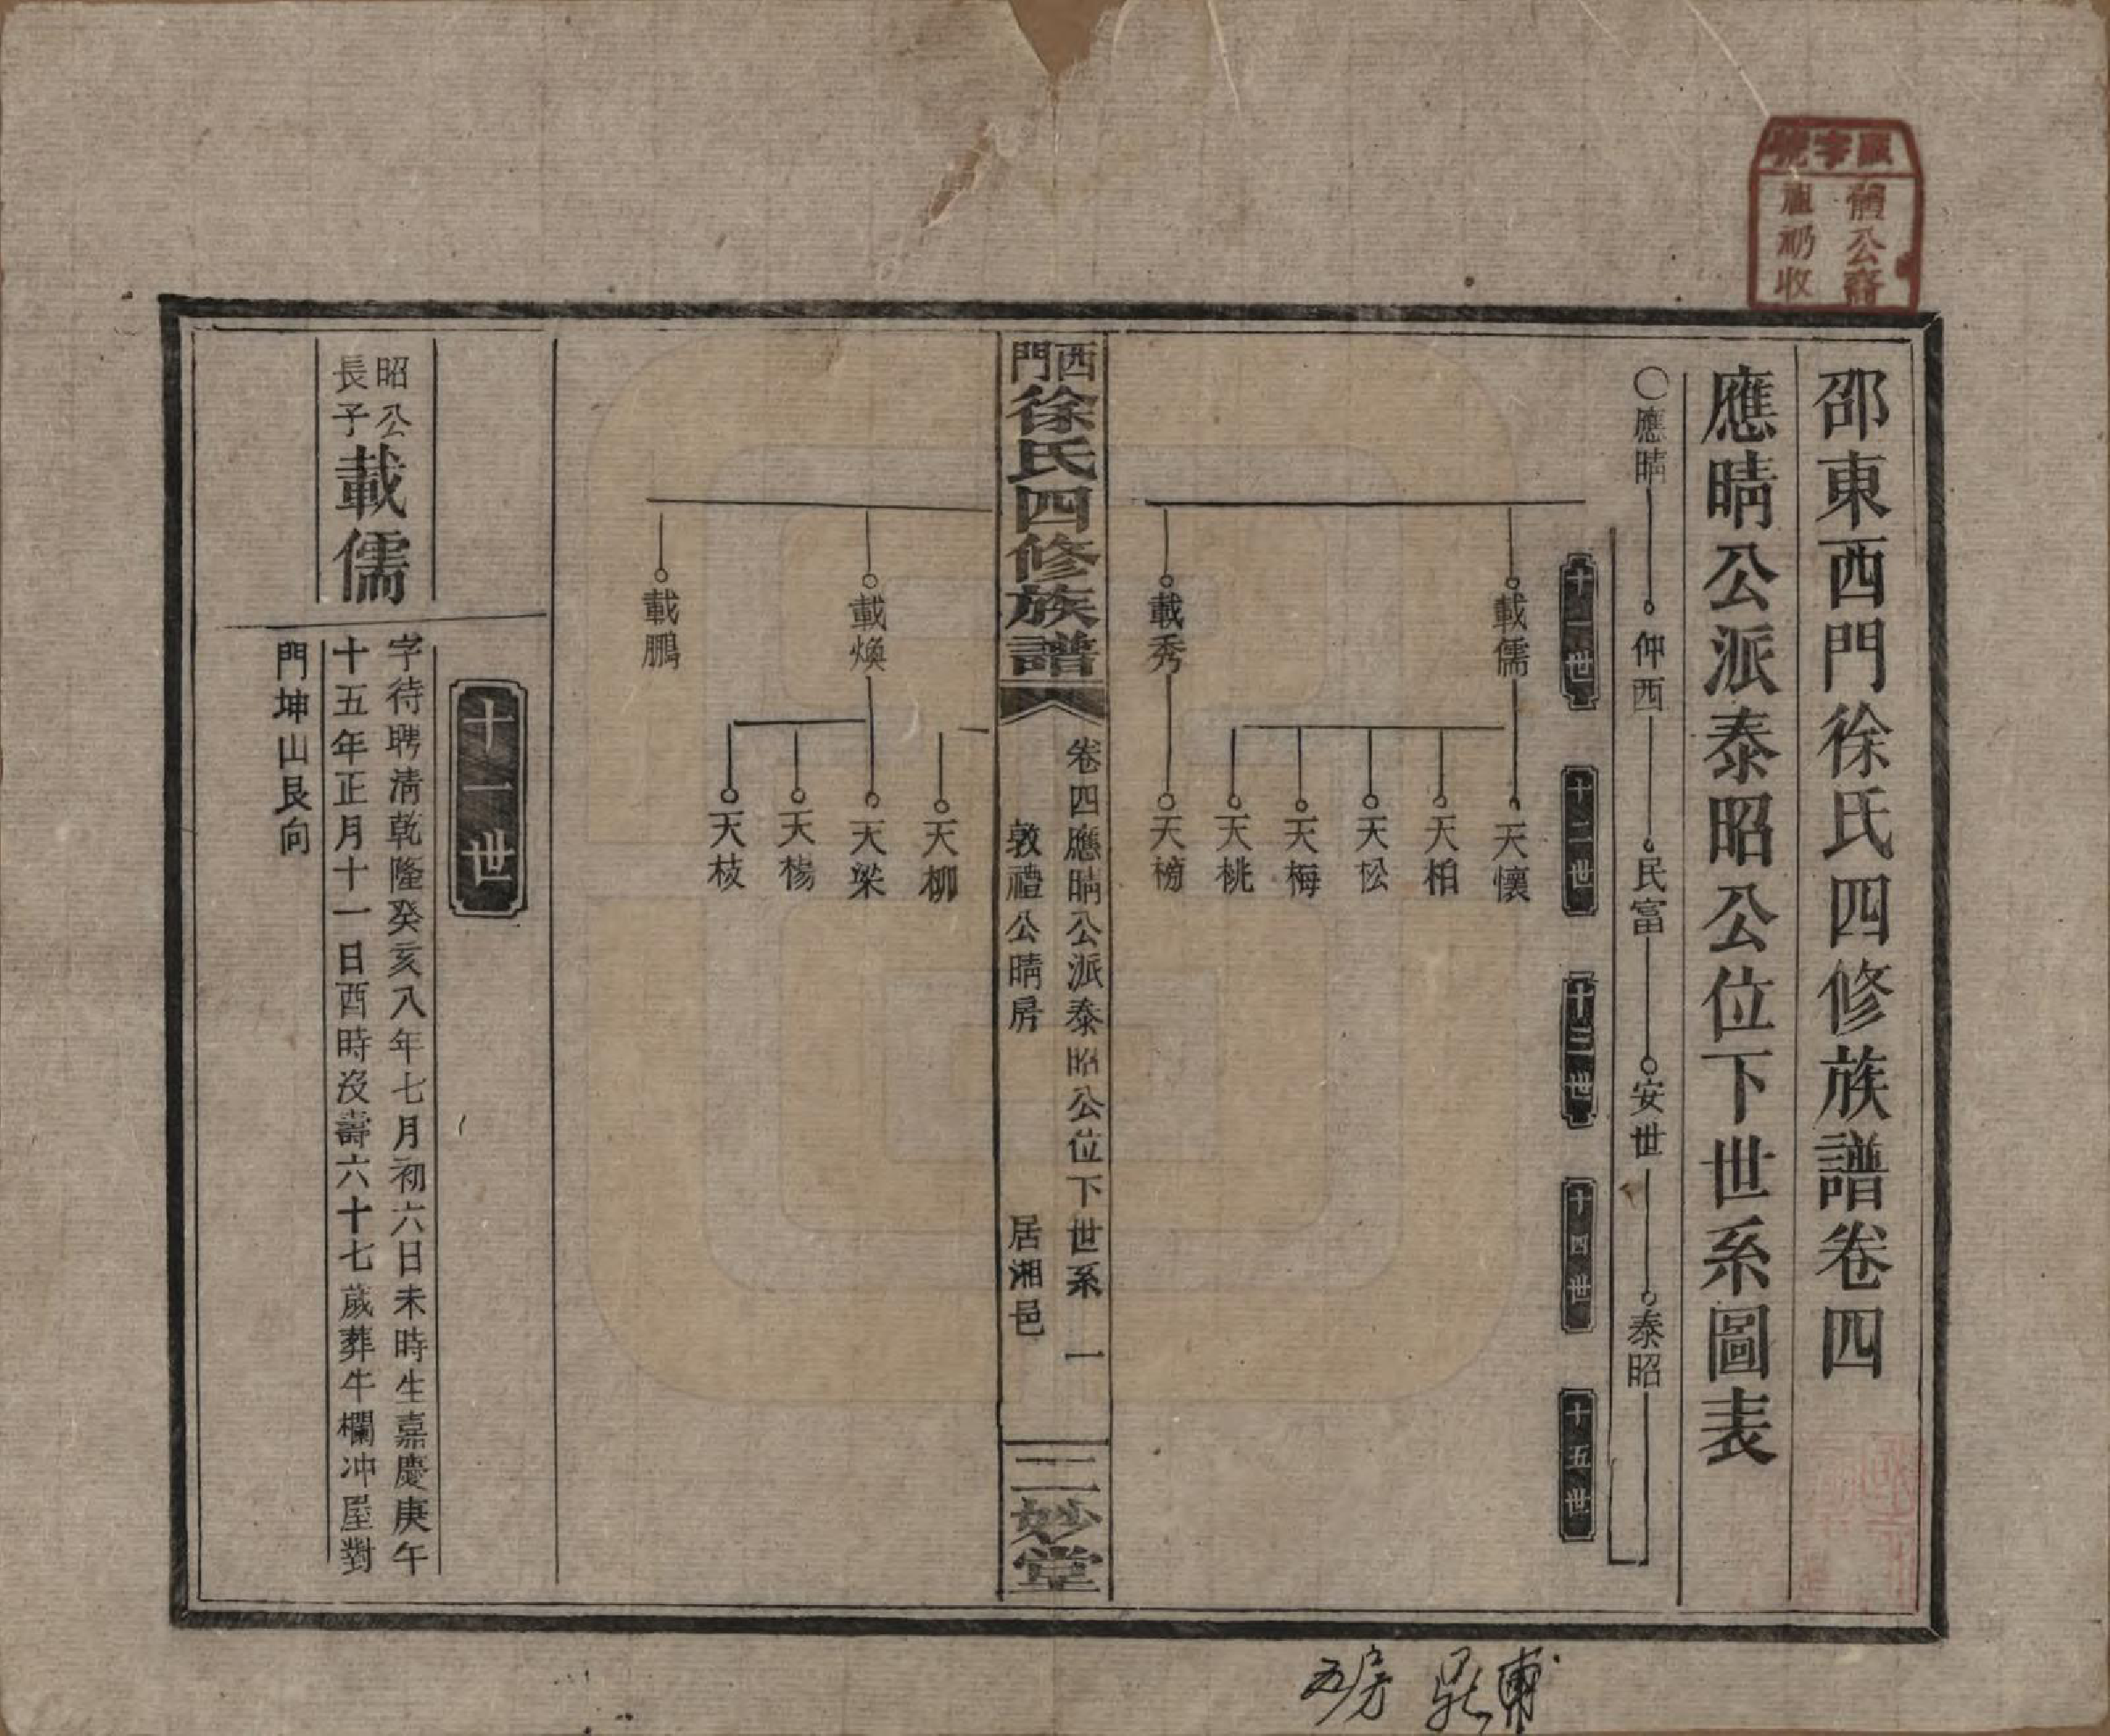 邵東西門徐氏四修族譜卷四
應晴公派泰昭公位下世系圖表
○應晴 仲西 民富 安世 泰昭
十一世 十二世 十三世 十四世 十五世
載儒 天懷
天柏
天松
天梅
天桃
載秀 天榜
西門徐氏四修族譜
卷四應晴公派泰昭公位下世系 一
敦禮公晴房 居湘邑
二妙堂
天柳
載煥 天梁
天楊
天枝
載鵬
十一世
昭公長子載儒
字待聘清乾隆癸亥八年七月初六日未時生嘉慶庚午
十五年正月十一日酉時沒壽六十七歲葬牛欄冲屋對
門坤山艮向
字號
公裔
收
五房